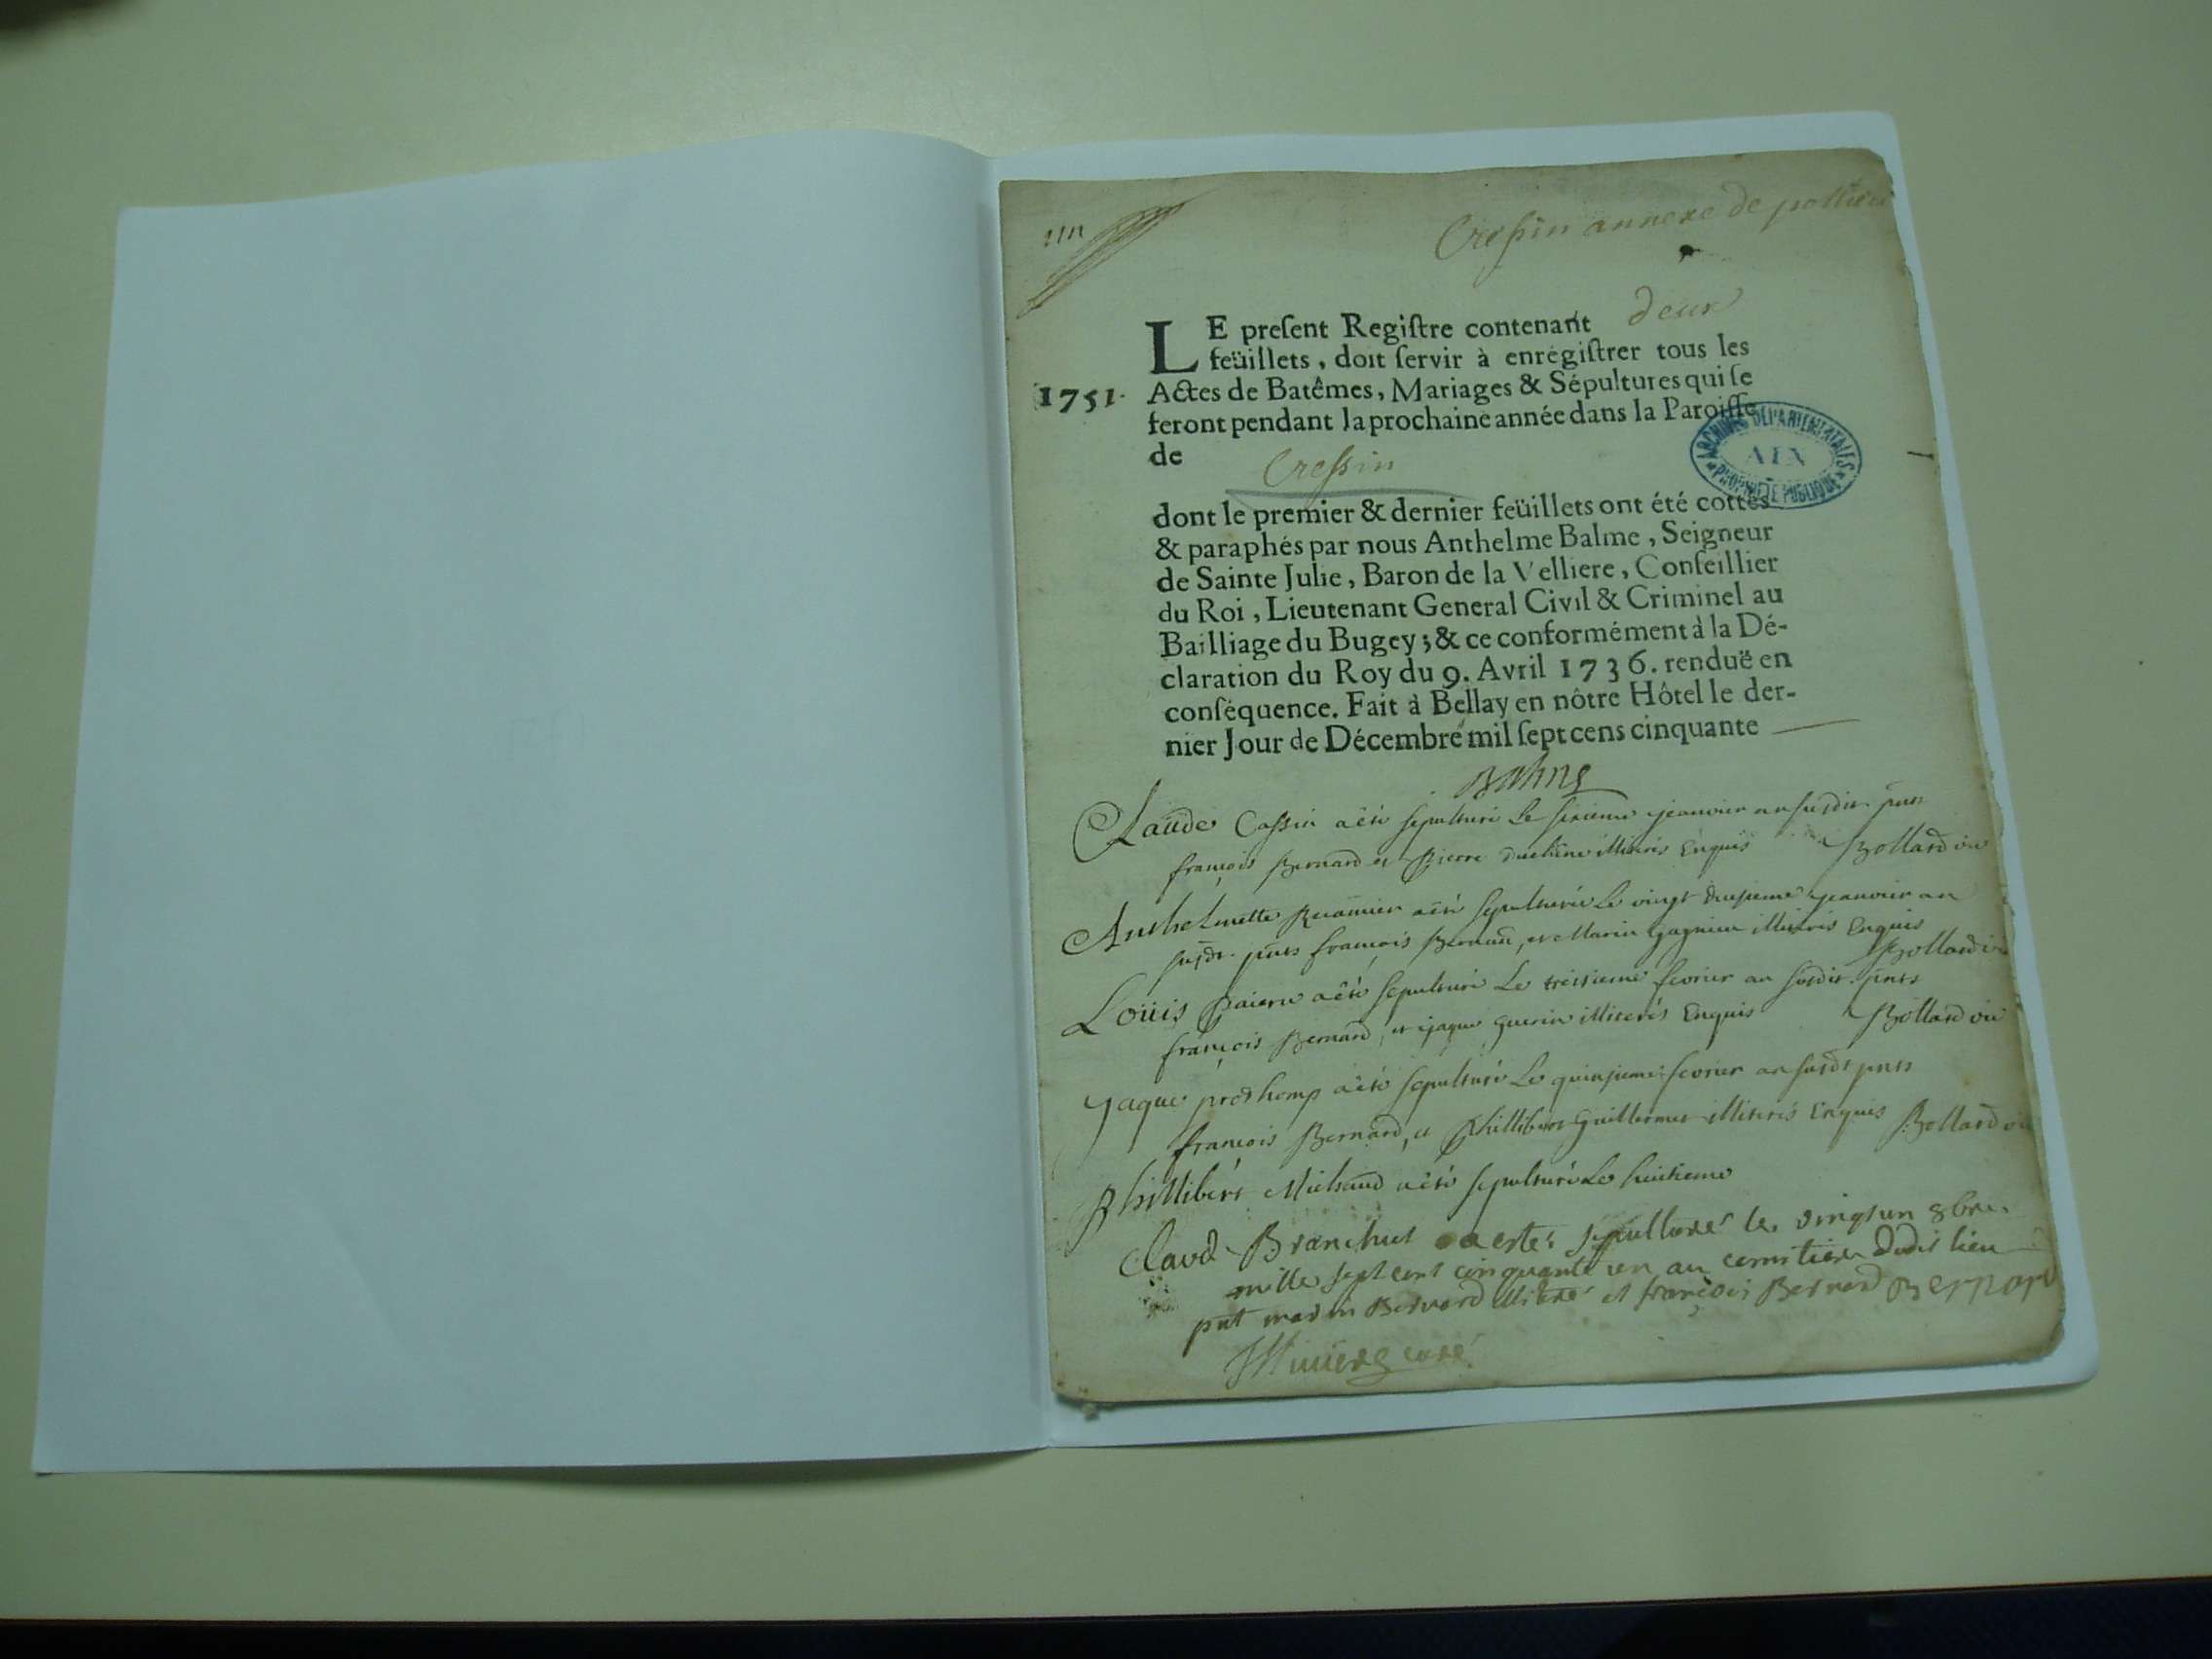 un
Cressin annexe de pollieu
LE preſent Regiſtre contenant deux
feüillets, doit ſervir à enrégiſtrer tous les
1751. Actes de Batêmes, Mariages & Sépultures qui ſe
feront pendant la prochaine année dans la Paroiſſe
de Cressin
ARCHIVES DEPARTEMENTALES
AIN
PROPRIETE PUBLIQUE
dont le premier & dernier feüillets ont été cottés
& paraphés par nous Anthelme Balme, Seigneur
de Sainte Julie, Baron de la Velliere, Conſeillier
du Roi, Lieutenant General Civil & Criminel au
Bailliage du Bugey; & ce conformément à la Dé-
claration du Roy du 9. Avril 1736. renduë en
conſéquence. Fait à Bellay en nôtre Hôtel le der-
nier Jour de Décembre mil ſept cens cinquante
Balme
Claude Cassin a été sepulturé Le sixieme jeanvier an susdit. pnts
françois Bernard et Pierre duchene illiterés Enquis Bollard vic
Anthelmette a été sepulturée Le vingt jeanvier an
susdt. pnts françois Bernard, et Marin illiterés Enquis
Bollard vic
Loüis a été sepulturé Le treisieme fevrier an susdit. pnts
françois Bernard, et jaque Guerin illiterés Enquis Bollard vic
Jaque prodhomp a été sepulturé Le quinsieme fevrier an susdt pnts
françois Bernard, et Phillibert Guillermet illiterés Enquis Bollard vic
Phillibert Michaud a été sepulturé Le huitieme
Claud Branchut a esté sepulturé le vingtun 8bre
mille sept cent cinquante un au cemitiere dudit lieu
pnt marin Bernard illiteré et françois Bernard Bernard
curé